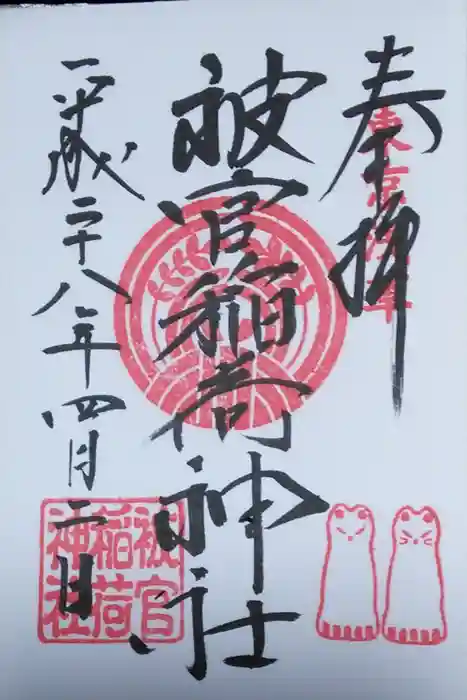 奉拝
東京浅草
被官稲荷神社
被官
稲荷
神社
平成二十八年四月二日